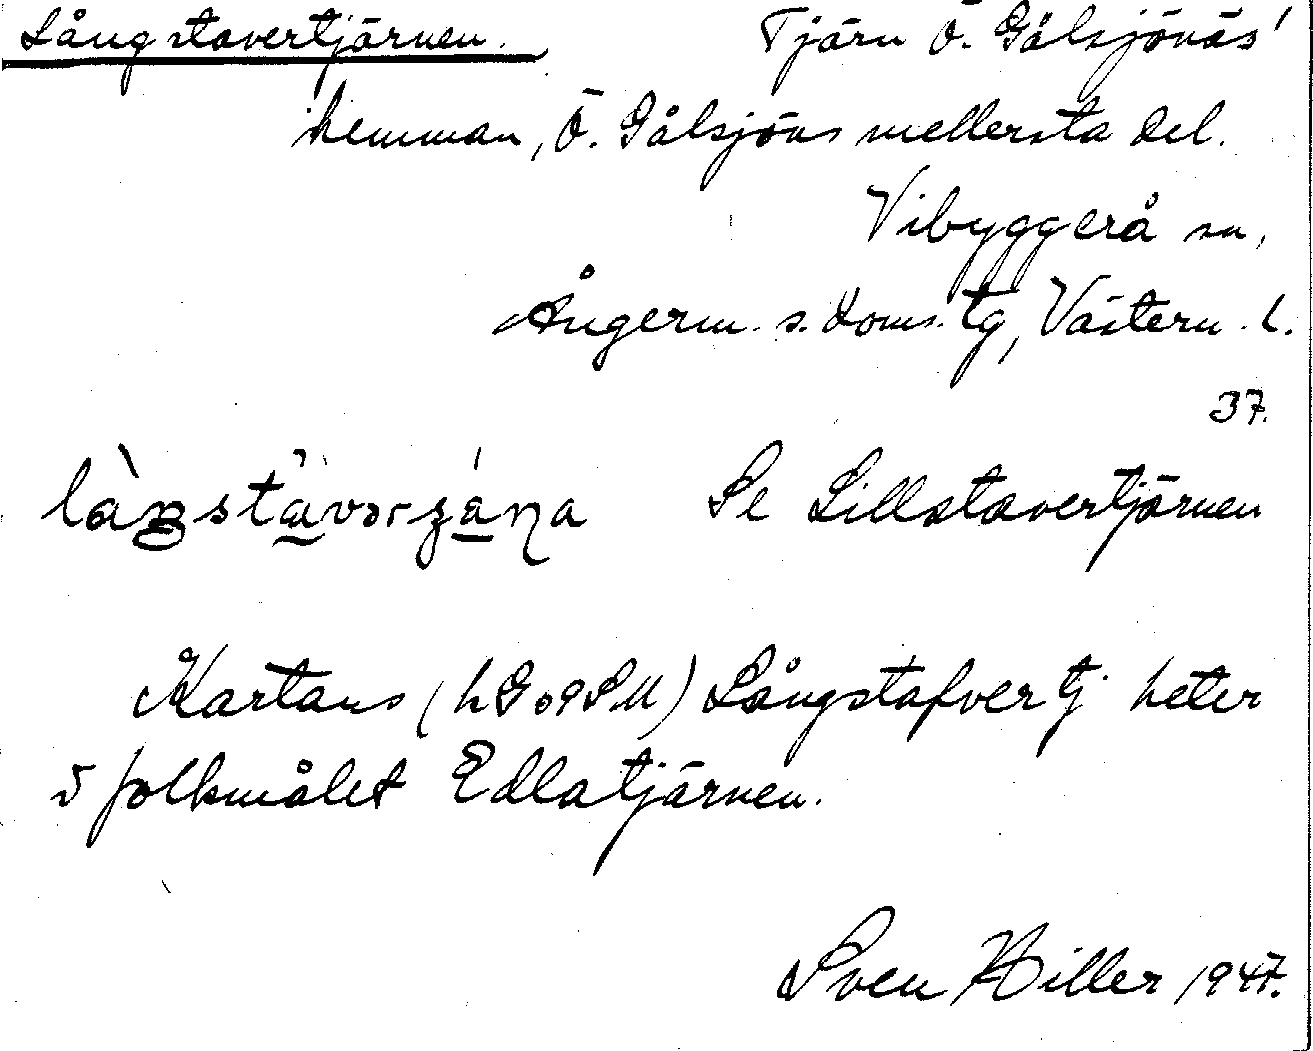 Långstavertjärnen. Tjärn Ö. Gålsjönäs'
hemman, Ö. Gålsjöns mellersta del.
Vibyggerå sn,
Ångerm. s. doms. tg, Västern. l.
37.
Se Lillstavertjärnen
Kartans (hGo9SM) Långstafver tj heter
i folkmålet Edlatjärnen.
Sven Hiller 1947.